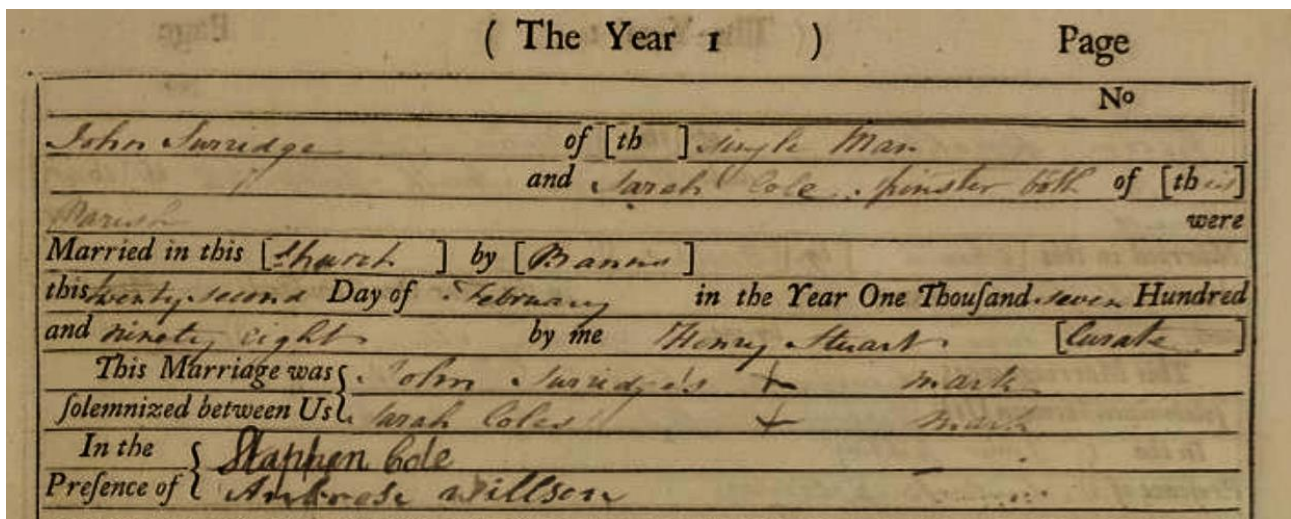 ( The Year 1 ) Page
No
John Surridge of [th ] single Man
and Sarah Cole spinster both of [this]
Parish were
Married in this [Church ] by [Banns ]
this twenty second Day of February in the Year One Thouſand seven Hundred
and ninety eight by me Henry Stuart [Curate ]
This Marriage was { John Surridge's + mark
ſolemnized between Us { Sarah Coles + mark
In the { Stappen Cole
Preſence of { Ambrose Willson